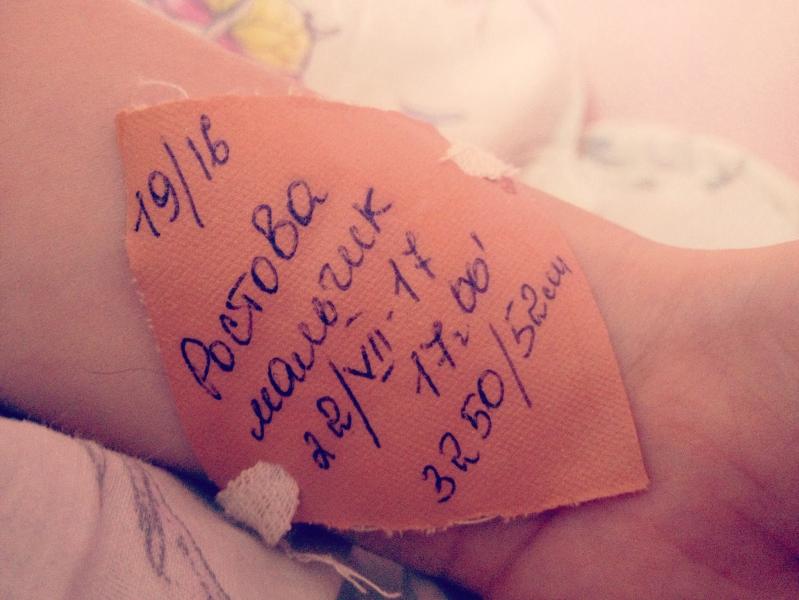 19/16
Ростова
мальчик
22/VII-17
17ч06'
3250/52см